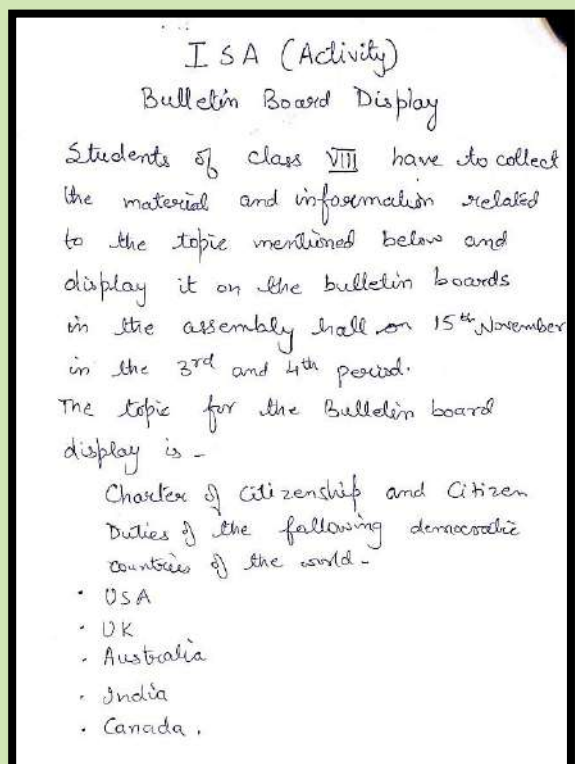 ISA (Activity)
Bulletin Board Display
Students of class VIII have to collect
the material and information related
to the topic mentioned below and
display it on the bulletin boards
in the assembly hall on 15th November
in the 3rd and 4th period.
The topic for the Bulletin board
display is -
Charter of Citizenship and Citizen
Duties of the following democratic
countries of the world -
• USA
• UK
• Australia
• India
• Canada.